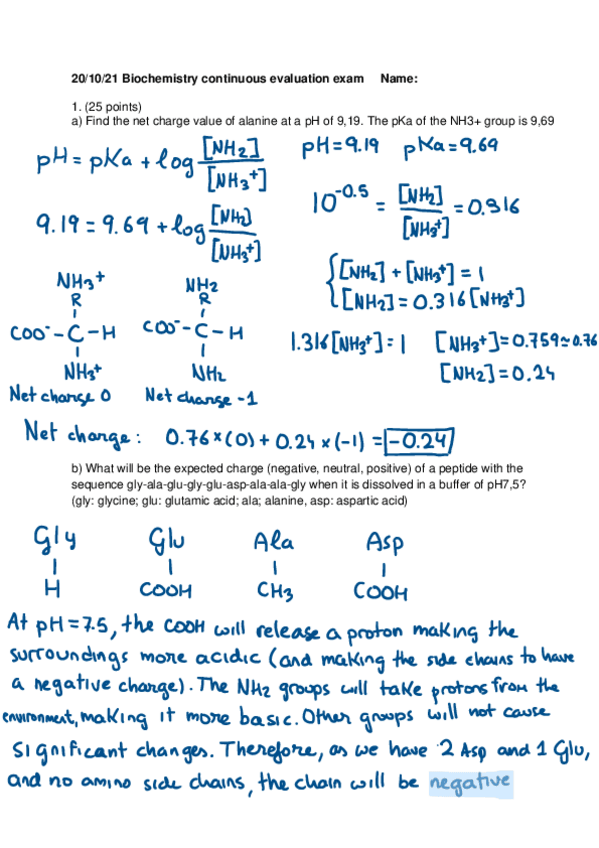 20/10/21 Biochemistry continuous evaluation exam Name:
1. (25 points)
a) Find the net charge value of alanine at a pH of 9,19. The pKa of the NH3+ group is 9,69
pH = pKa + log [NH2] / [NH3+]
pH = 9.19 pKa = 9.69
10^-0.5 = [NH2] / [NH3+] = 0.316
9.19 = 9.69 + log [NH2] / [NH3+]
{ [NH2] + [NH3+] = 1
[NH2] = 0.316 [NH3+]
NH3+ NH2
R R
COO- - C - H COO- - C - H
NH3+ NH2
1.316 [NH3+] = 1 [NH3+] = 0.759 ≃ 0.76
[NH2] = 0.24
Net charge 0 Net charge -1
Net charge: 0.76 × (0) + 0.24 × (-1) = -0.24
b) What will be the expected charge (negative, neutral, positive) of a peptide with the
sequence gly-ala-glu-gly-glu-asp-ala-ala-gly when it is dissolved in a buffer of pH7,5?
(gly: glycine; glu: glutamic acid; ala; alanine, asp: aspartic acid)
Gly Glu Ala Asp
H COOH CH3 COOH
At pH = 7.5, the COOH will release a proton making the
surroundings more acidic (and making the side chains to have
a negative charge). The NH2 groups will take protons from the
environment, making it more basic. Other groups will not cause
significant changes. Therefore, as we have 2 Asp and 1 Glu,
and no amino side chains, the chain will be negative